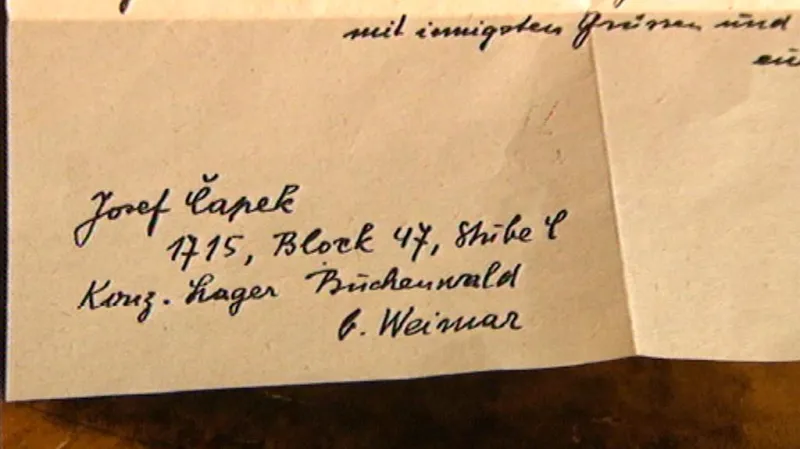 mit innigsten Grüssen und
Josef Čapek
1715, Block 47, Stube C
Konz. Lager Buchenwald
b. Weimar